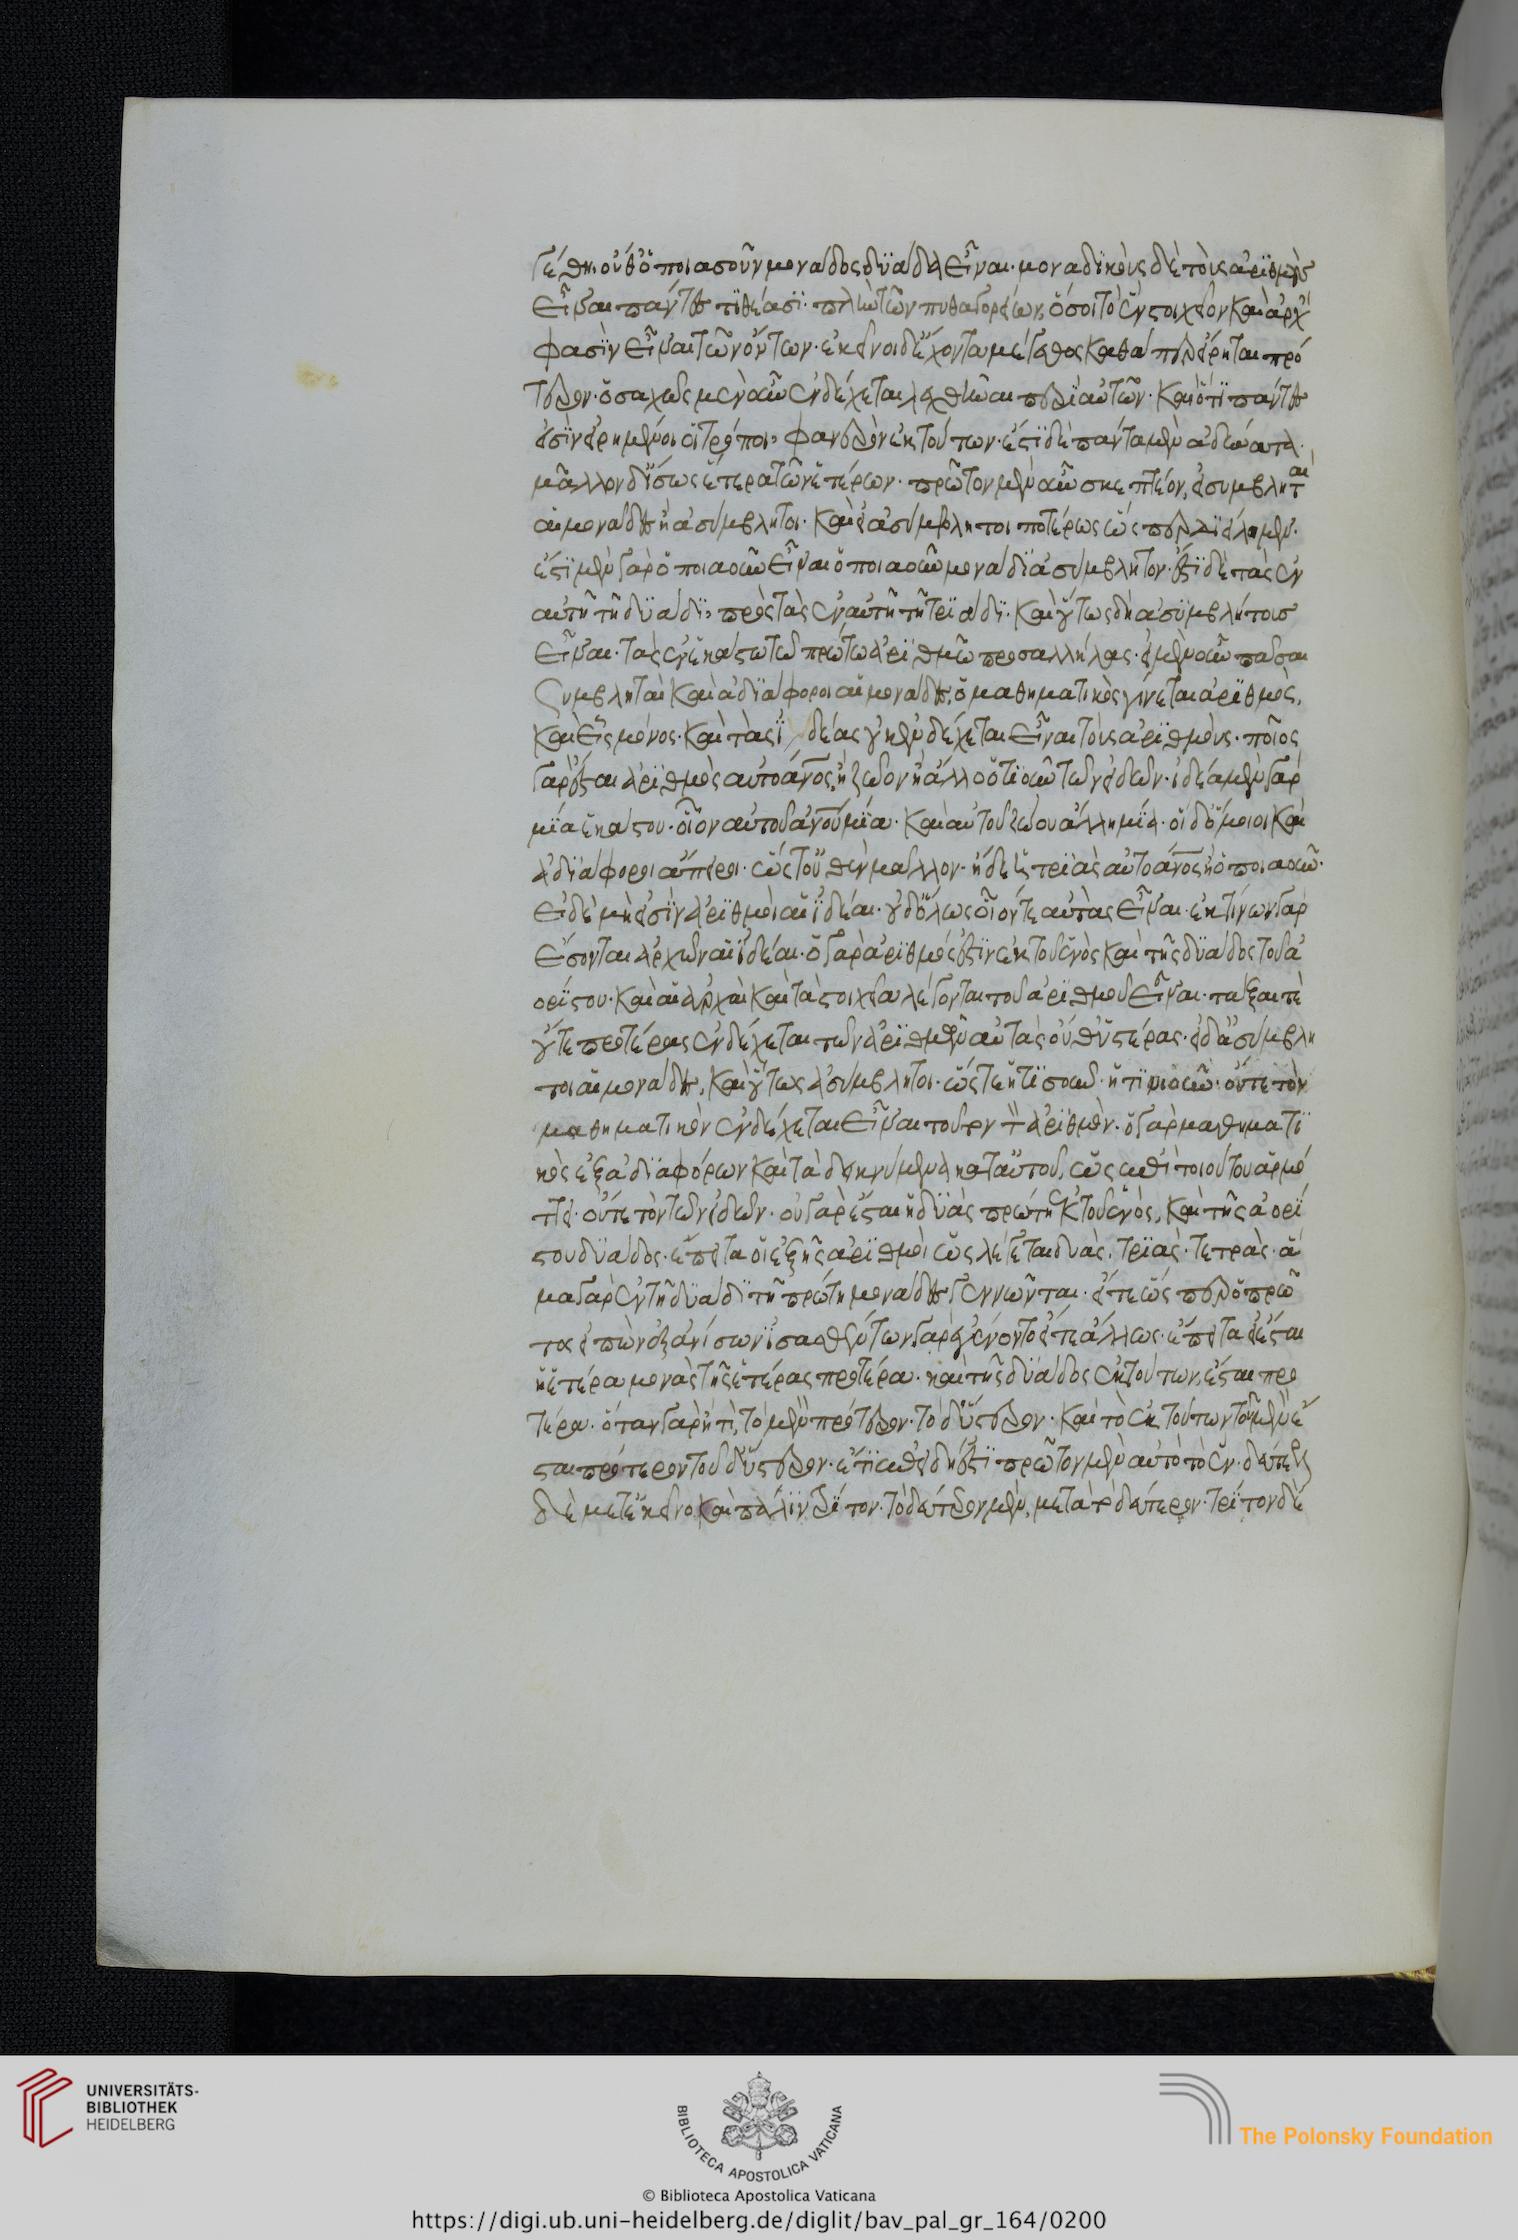 γέθη. οὐθ' ὁποιασοῦν μοναδος δϋάδα εἶναι. μοναδϊκοὺς δὲ τοὺς ἀρϊθμοὺς
εἶναι πάντες τϊθέασϊ. πλὴν τῶν πυθαγορείων, ὅσοι τὸ ἓν στοιχεῖον καὶ ἀρχ
φασὶν εἶναι τῶν ὄντων. ἐκεῖνοι δ' ἔχοντα μέγεθος καθάπερ εἴρηται πρό
τερον. ὁσαχῶς μὲν οὖν ἐνδέχεται λεχθῆναι περὶ αὐτῶν. καὶ ὅτϊ πάντες
εἰσὶν εἰρημένοι οἱ τρόποι, φανερὸν ἐκ τούτων. ἔστϊ δὲ πάντα μὲν ἀδύνατα.
μᾶλλον δ' ἴσως ἕτερα τῶν ἑτέρων. πρῶτον μὲν οὖν σκεπτέον, εἰ συμβληταὶ
αἱ μονάδες ἢ ἀσύμβλητοι. καὶ εἰ ἀσύμβλητοι ποτέρως ὥσπερ διείλομεν.
ἔστϊ μὲν γὰρ ὁποιαοῦν εἶναι ὁποιαοῦν μονάδϊ ἀσύμβλητον. ἔστϊ δὲ τὰς ἐν
αὐτῇ τῇ δϋάδϊ, πρὸς τὰς ἐν αὐτῇ τῇ τρϊάδϊ. καὶ οὕτως δὴ ἀσϋμβλήτους
εἶναι. τὰς ἐν ἑκάστω τῶ πρώτω ἀρϊθμῶ πρὸσ ἀλλήλας. εἰ μὲν οὖν πᾶσαι
συμβληταὶ καὶ ἀδϊάφοροι αἱ μονάδες, ὁ μαθηματικὸς γίνεται ἀρϊθμὸς,
καὶ εἷς μόνος. καὶ τὰς ϊδέας οὐκ ἐνδέχεται εἶναι τοὺς ἀρϊθμοὺς. ποῖος
γὰρ ἔσται ἀρϊθμὸς αὐτοάνος, ἢ ζῶον ἢ ἄλλο ὁτϊοῦν τῶν εἰδῶν. ἰδέα μὲν γὰρ
μϊα ἑκάστου. οἷον αὐτοῦ ἀνου μϊα. καὶ αὐτοῦ ζώου ἄλλη μία. οἱ δ' ὅμοιοι καὶ
ἀδϊάφοροι ἄπειροι. ὥστ' οὐθὲν μᾶλλον. ἥδε ἡ τρϊὰς αὐτοάνος ἢ ὁποιαοῦν.
εἰ δὲ μή εἰσὶν ἀρϊθμοὶ αἱ ϊδέαι. οὐδ' ὅλως οἷόν τε αὐτὰς εἶναι. ἐκ τίνων γὰρ
ἔσονται ἀρχῶν αἱ ϊδέαι. ὁ γὰρ ἀρϊθμός ἐστϊν ἐκ τοῦ ἑνὸς καὶ τῆς δϋάδος τοῦ ἀ
ορίστου. καὶ αἱ ἀρχαὶ καὶ τὰ στοιχεῖα λέγονται τοῦ ἀρϊθμοῦ εἶναι. τάξαι τὲ
οὔτε προτέρας ἐνδέχεται τῶν ἀρϊθμῶν αὐτὰς οὔθ' ὑστέρας. εἰ δ' ἀσύμβλη
τοι αἱ μονάδες, καὶ οὕτως ἀσύμβλητοι. ὥστε ἡτϊσοῦν. ἡτϊνιοῦν. οὔτε τὸν
μαθηματικὸν ἐνδέχεται εἶναι τοῦτον τ ἀρϊθμὸν. ὁ γὰρ μαθηματϊ
κὸς ἐξ ἀδϊαφόρων καὶ τὰ δεικνύμενα κατ' αὐτοῦ, ὡς ἐπὶ τοιούτου ἁρμό
ττει. οὔτε τὸν τῶν εἰδῶν. οὐ γὰρ ἔσται ἡ δϋὰς πρώτη ἐκ τοῦ ἑνὸς, καὶ τῆς ἀορί
στου δϋάδος. ἔπειτα οἱ ἑξῆς ἀρϊθμοὶ ὡς λέγεται δυάς. τρϊὰς. τετρὰς. ἅ
μα γὰρ ἐν τῇ δϋάδϊ τῇ πρώτη μονάδες γεννῶνται. εἴτε ὥσπερ ὁ πρῶ
τος εἰπὼν ἐξ ἀνίσων ἰσασθέντων γὰρ ἐγένοντο εἴτε ἄλλως. ἔπειτα εἰ ἔσται
ἡ ἑτέρα μονὰς τῆς ἑτέρας προτέρα. καὶ τῆς δϋάδος ἐκ τούτων, ἔσται προ
τέρα. ὅταν γὰρ ἦ τὶ, τὸ μὲν πρότερον. τὸ δ' ὕστερον. καὶ τὸ ἐκ τούτων τοῦ μὲν ἔ
σται πρότερον τοῦ δ' ὕστερον. ἔτϊ ἐπειδή ἐστϊ πρῶτον μὲν αὐτὸ τὸ ἓν. ἔπειτα
δὲ μετ' ἐκεῖνο καὶ πάλϊν τρίτον. τὸ δεύτερον μὲν, μετὰ τὸ δεύτερον. τρϊτον δὲ
UNIVERSITÄTS-
BIBLIOTHEK
HEIDELBERG
BIBLIOTECA APOSTOLICA VATICANA
The Polonsky Foundation
© Biblioteca Apostolica Vaticana
https://digi.ub.uni-heidelberg.de/diglit/bav_pal_gr_164/0200